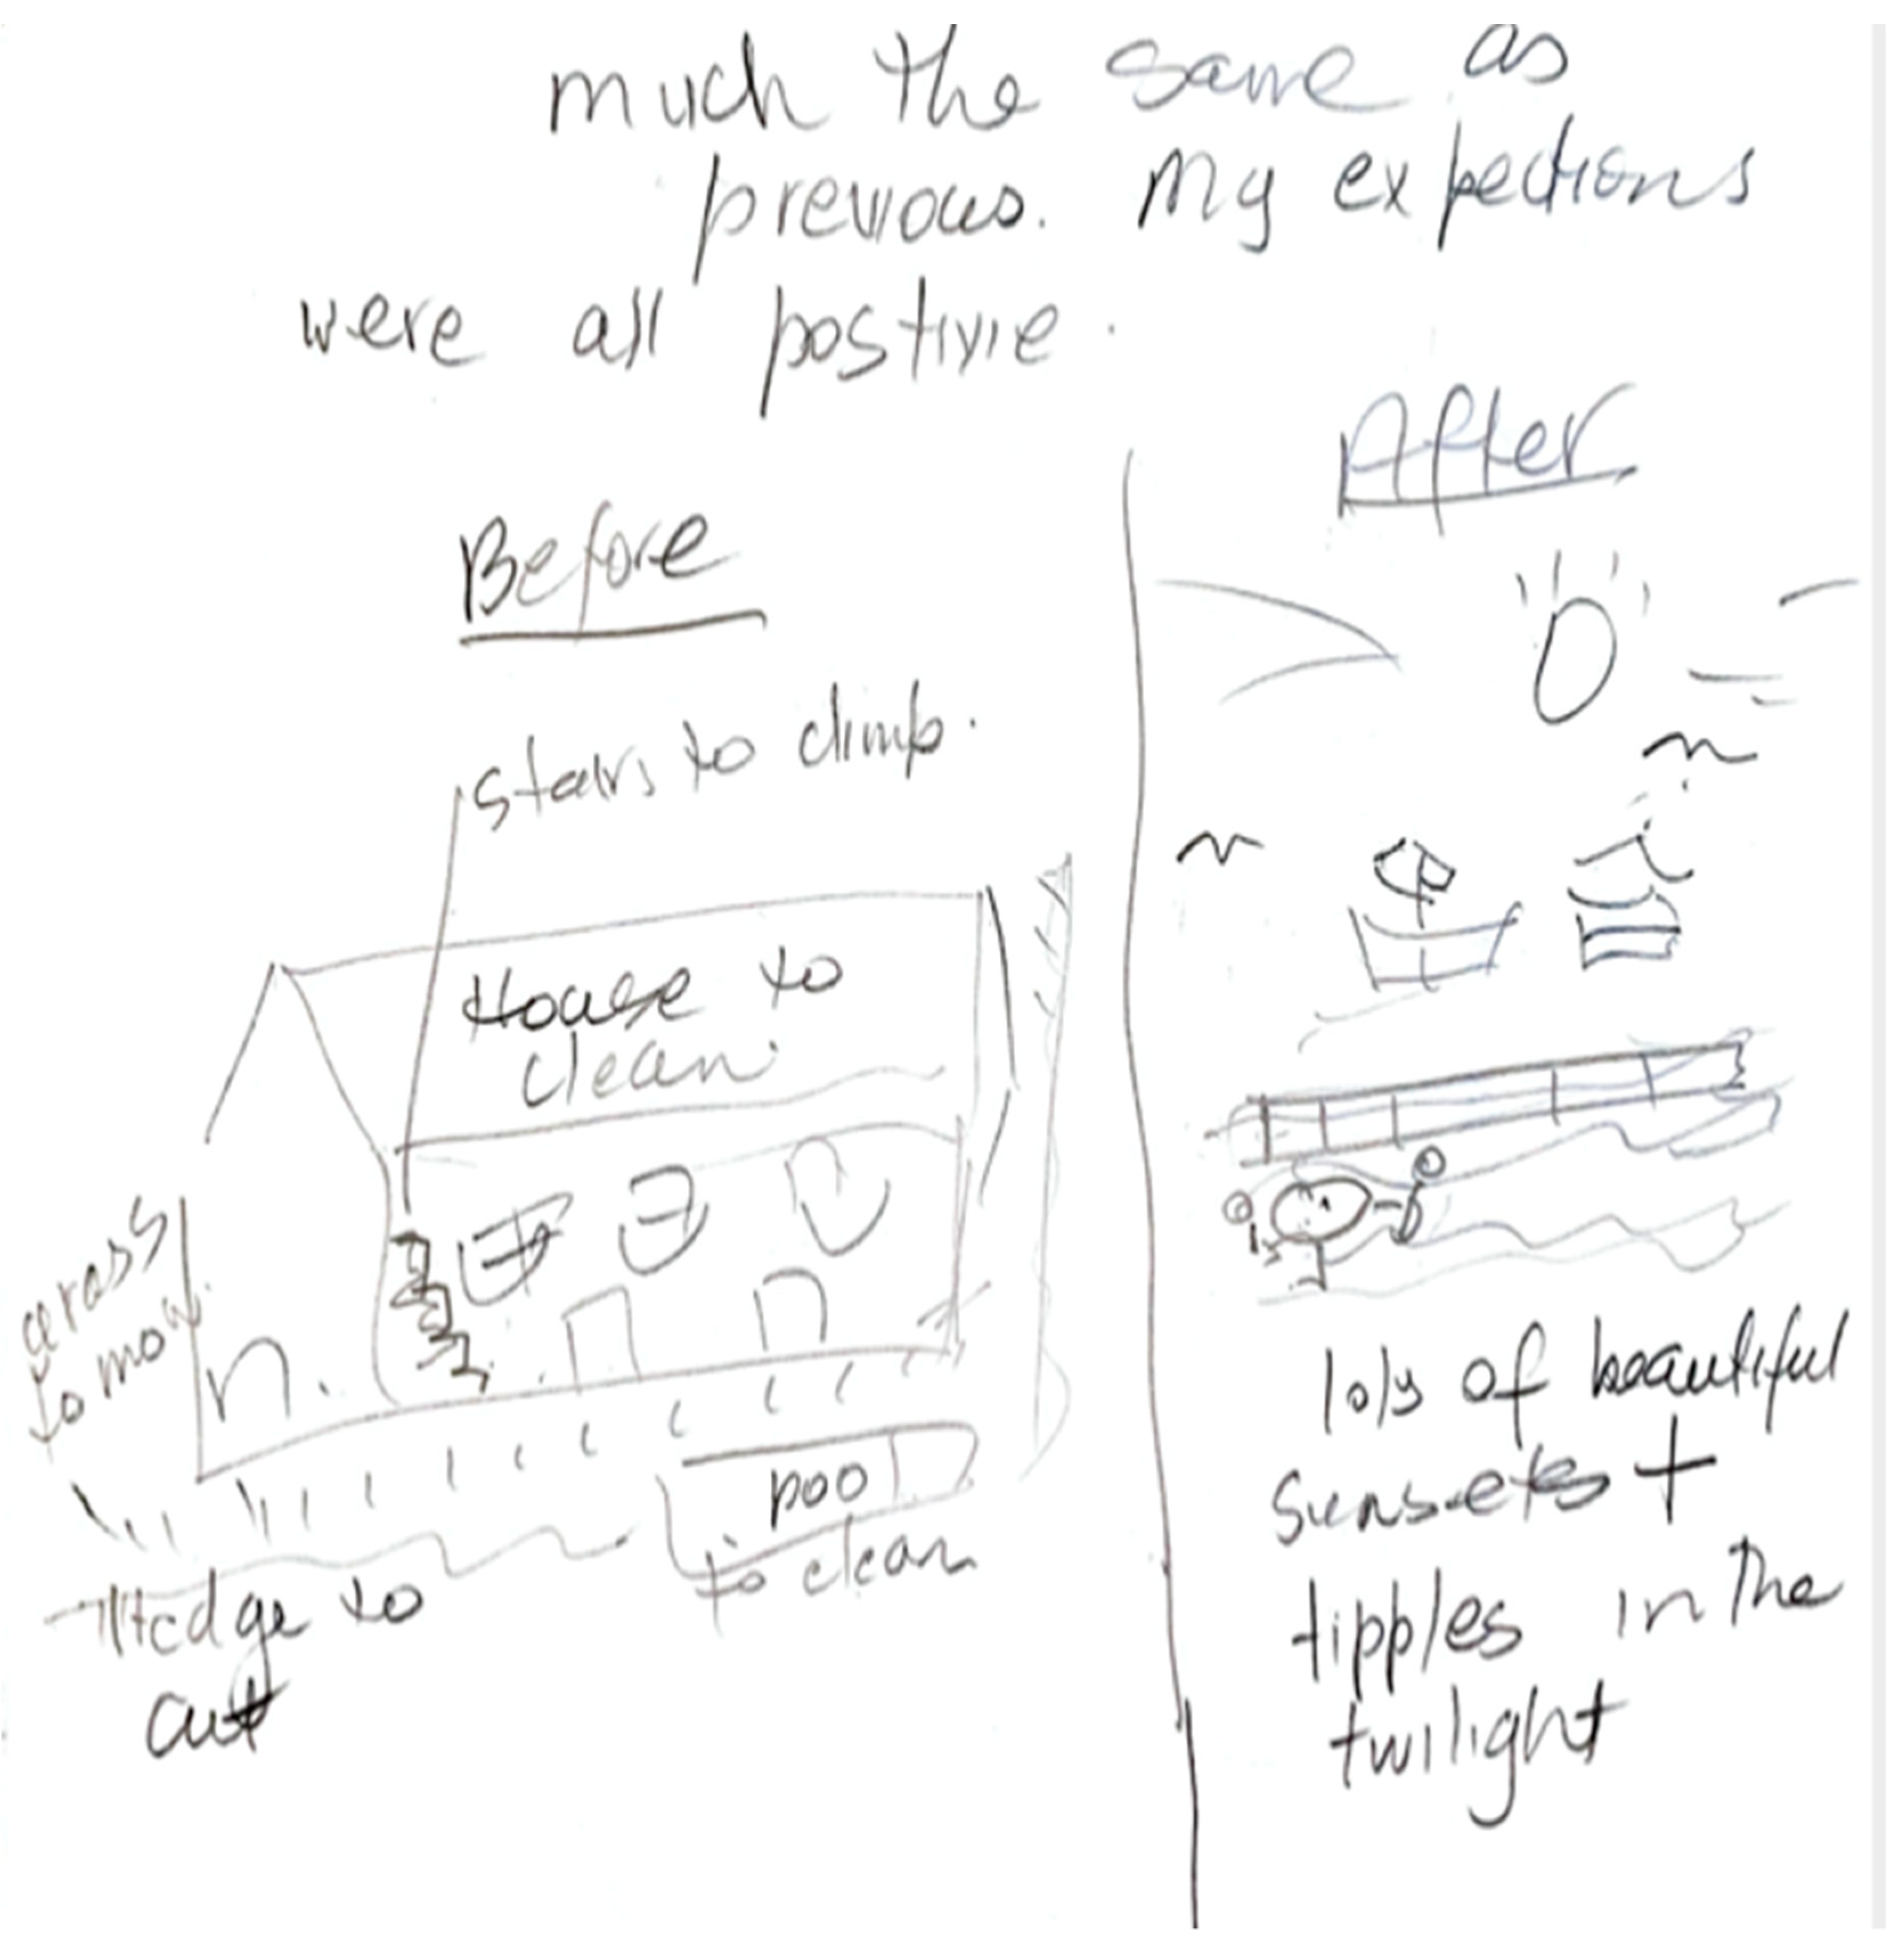 much the same as
previous. My expections
were all postivie.
Before
stairs to climb.
House to
clean.
grass
to mow.
poo
to clean
Hedge to
cut
After
lots of beautiful
sunsets +
tipples in the
twilight